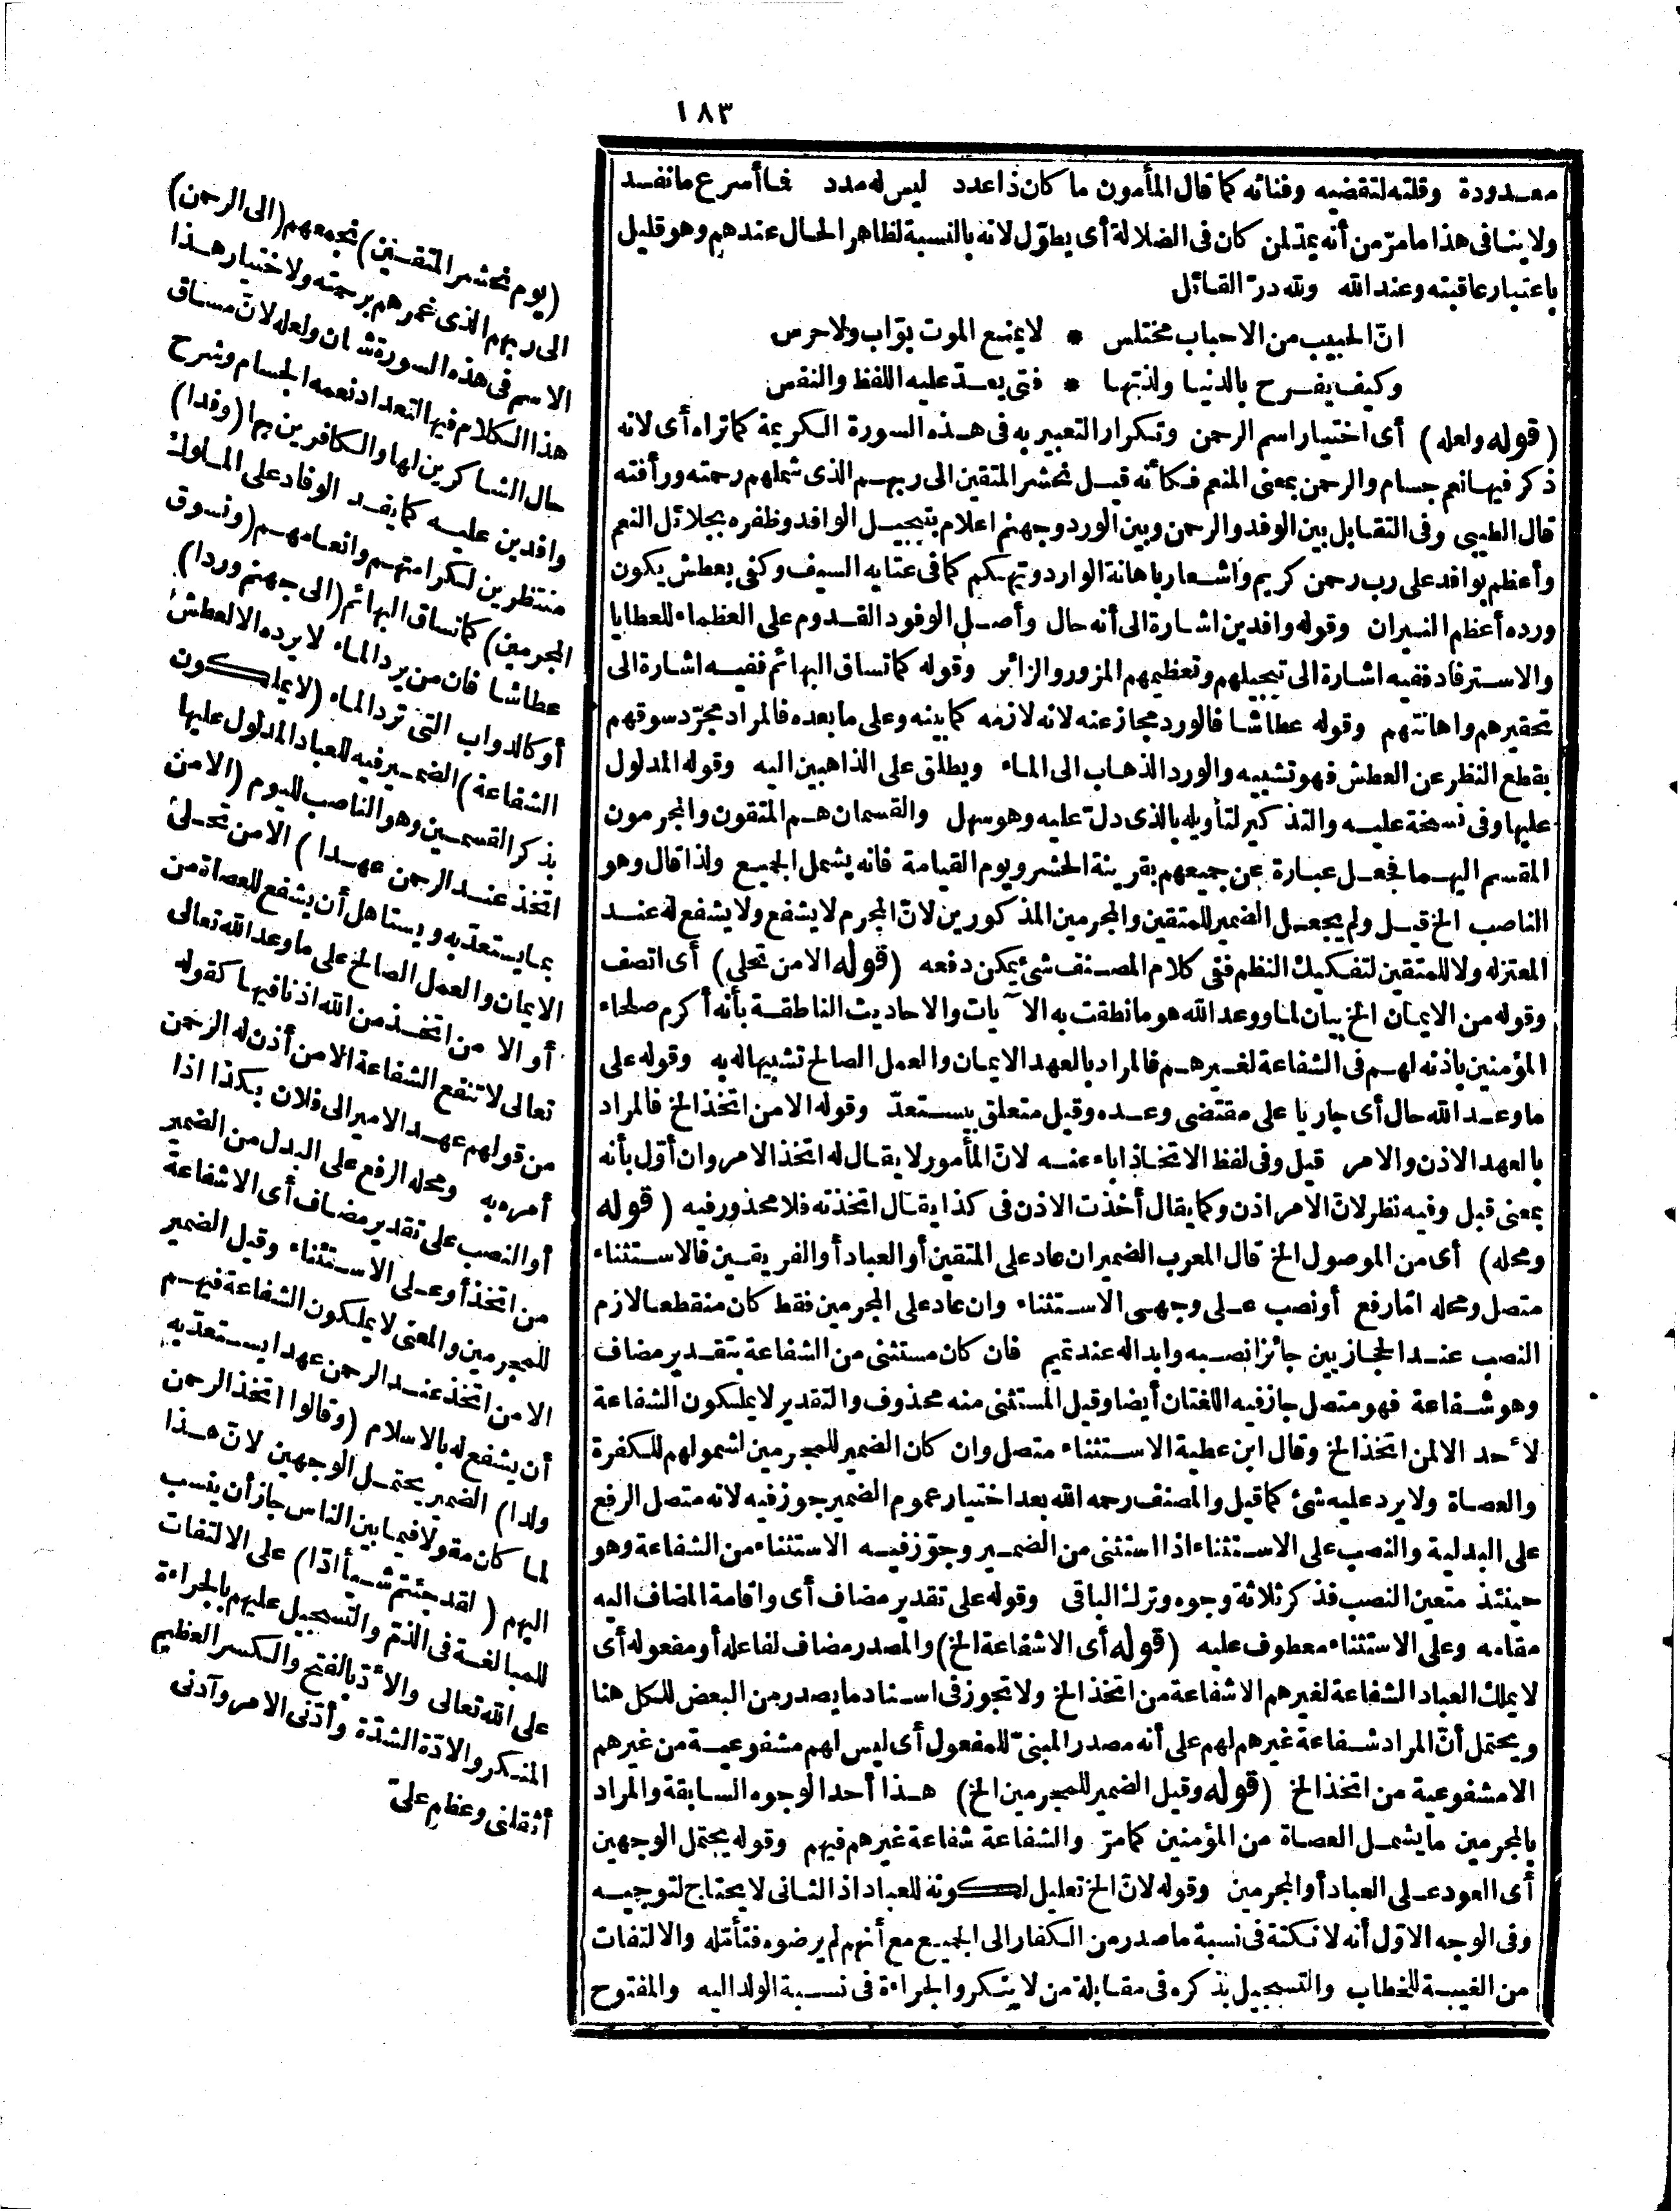 ١٨٣
معدودة وقلته لتقضيه وفنائه كما قال المأمون ما كان ذا عدد ليس له مدد فما أسرع ما نفد
ولا ينافى هذا ما مرّ من أنه يمدّ لمن كان فى الضلالة أى يطوّل لانه بالنسبة لظاهر الحال عندهم وهو قليل
باعتبار عاقبته وعند الله ولله درّ القائل
انّ الحبيب من الاحباب مختلس * لا يمنع الموت بوّاب ولا حرس
وكيف يفرح بالدنيا ولذتها * فتى يعدّ عليه اللفظ والنفس
(قوله ولعله) أى اختيار اسم الرحمن وتكرار التعبير به فى هذه السورة الكريمة كما تراه أى لانه
ذكر فيها نعم جسام والرحمن بمعنى المنعم فكأنه قيل نحشر المتقين الى ربهم الذى شملهم رحمته ورأفته
قال الطيبى وفى التقابل بين الوفد والرحمن وبين الورد وجهنم اعلام بتبجيل الوافد وظفره بجلائل النعم
وأعظم بوافد على رب رحمن كريم واشعار باهانة الوارد وتهكم كما فى عتابه السيف وكفى بعطش يكون
ورده أعظم النيران وقوله وافدين اشارة الى أنه حال وأصل الوفود القدوم على العظماء للعطايا
والاسترفاد ففيه اشارة الى تبجيلهم وتعظيمهم المزور والزائر وقوله كما تساق البهائم ففيه اشارة الى
تحقيرهم واهانتهم وقوله عطاشا فالورد مجاز عنه لانه لازمه كما بينه وعلى ما بعده فالمراد مجرّد سوقهم
بقطع النظر عن العطش فهو تشبيه والورد الذهاب الى الماء ويطلق على الذاهبين اليه وقوله المدلول
عليها وفى نسخة عليه والتذكير لتأويله بالذى دلّ عليه وهو سهل والقسمان هم المتقون والمجرمون
المقسم اليهما فجعل عبارة عن جميعهم بقرينة الحشر ويوم القيامة فانه يشمل الجميع ولذا قال وهو
الناصب الخ قيل ولم يجعل الضمير للمتقين والمجرمين المذكورين لانّ المجرم لا يشفع ولا يشفع له عند
المعتزلة ولا للمتقين لتفكيك النظم ففى كلام المصنف شئ يمكن دفعه (قوله الا من تحلى) أى اتصف
وقوله من الايمان الخ بيان لما ووعد الله هو ما نطقت به الآيات والاحاديث الناطقة بأنه أكرم صلحاء
المؤمنين باذنه لهم فى الشفاعة لغيرهم فالمراد بالعهد الايمان والعمل الصالح تشبيها له به وقوله على
ما وعد الله حال أى جاريا على مقتضى وعده وقيل متعلق بيستعدّ وقوله الا من اتخذ الخ فالمراد
بالعهد الاذن والامر قيل وفى لفظ الاتخاذ اباء عنه لانّ المأمور لا يقال له اتخذ الامر وان أوّل بأنه
بمعنى قبل وفيه نظر لانّ الامر اذن وكما يقال أخذت الاذن فى كذا يقال اتخذته فلا محذور فيه (قوله
ومحله) أى من الموصول الخ قال المعرب الضمير ان عاد على المتقين أو العباد أو الفريقين فالاستثناء
متصل ومحله امّا رفع أو نصب على وجهى الاستثناء وان عاد على المجرمين فقط كان منقطعا لازم
النصب عند الحجازيين جائزا نصبه وابداله عند تميم فان كان مستثنى من الشفاعة بتقدير مضاف
وهو شفاعة فهو متصل جاز فيه اللغتان أيضا وقيل المستثنى منه محذوف والتقدير لا يملكون الشفاعة
لأحد الا لمن اتخذ الخ وقال ابن عطية الاستثناء متصل وان كان الضمير للمجرمين لشمولهم للكفرة
والعصاة ولا يرد عليه شئ كما قيل والمصنف رحمه الله بعد اختيار عموم الضمير جوز فيه لانه متصل الرفع
على البدلية والنصب على الاستثناء اذا استثنى من الضمير وجوّز فيه الاستثناء من الشفاعة وهو
حينئذ متعين النصب فذكر ثلاثة وجوه وترك الباقى وقوله على تقدير مضاف أى واقامة المضاف اليه
مقامه وعلى الاستثناء معطوف عليه (قوله أى الا شفاعة الخ) والمصدر مضاف لفاعله أو مفعوله أى
لا يملك العباد الشفاعة لغيرهم الا شفاعة من اتخذ الخ ولا تجوز فى اسناد ما يصدر من البعض للكل هنا
ويحتمل أنّ المراد شفاعة غيرهم لهم على أنه مصدر المبنىّ للمفعول أى ليس لهم مشفوعية من غيرهم
الا مشفوعية من اتخذ الخ (قوله وقيل الضمير للمجرمين الخ) هذا أحد الوجوه السابقة والمراد
بالمجرمين ما يشمل العصاة من المؤمنين كما مرّ والشفاعة شفاعة غيرهم فيهم وقوله يحتمل الوجهين
أى العود على العباد أو المجرمين وقوله لانّ الخ تعليل لكونه للعباد اذ الثانى لا يحتاج لتوجيه
وفى الوجه الاوّل أنه لا نكتة فى نسبة ما صدر من الكفار الى الجميع مع أنهم لم يرضوه فتأمّله والالتفات
من الغيبة للخطاب والتسجيل بذكره فى مقابلة من لا ينكر والجراءة فى نسبة الولد اليه والمفتوح
(يوم نحشر المتقين) نجمعهم (الى الرحمن)
الى ربهم الذى غمرهم برحمته ولاختيار هذا
الاسم فى هذه السورة شان ولعله لانّ مساق
هذا الكلام فيها التعداد نعمه الجسام وشرح
حال الشاكرين لها والكافرين بها (وفدا)
وافدين عليه كما يفد الوفاد على الملوك
منتظرين لكرامتهم وانعامهم (ونسوق
المجرمين) كما تساق البهائم (الى جهنم وردا)
عطاشا فان من يرد الماء لا يرده الا لعطش
أو كالدواب التى ترد الماء (لا يملكون
الشفاعة) الضمير فيه للعباد المدلول عليها
بذكر القسمين وهو الناصب لليوم (الا من
اتخذ عند الرحمن عهدا) الا من تحلى
بما يستعدّ به ويستاهل أن يشفع للعصاة من
الايمان والعمل الصالح على ما وعد الله تعالى
أو الا من اتخذ من الله اذنا فيها كقوله
تعالى لا تنفع الشفاعة الا من أذن له الرحمن
من قولهم عهد الامير الى فلان بكذا اذا
أمره به ومحله الرفع على البدل من الضمير
أو النصب على تقدير مضاف أى الا شفاعة
من اتخذ أو على الاستثناء وقيل الضمير
للمجرمين والمعنى لا يملكون الشفاعة فيهم
الا من اتخذ عند الرحمن عهدا يستعدّ به
أن يشفع له بالاسلام (وقالوا اتخذ الرحمن
ولدا) الضمير يحتمل الوجهين لانّ هذا
لما كان مقولا فيما بين الناس جاز أن ينسب
اليهم (لقد جئتم شيأ ادّا) على الالتفات
للمبالغة فى الذمّ والتسجيل عليهم بالجراءة
على الله تعالى والأدّ بالفتح والكسر العظيم
المنكر والادّة الشدّة وأدّنى الامر وآدنى
أثقلنى وعظم علىّ